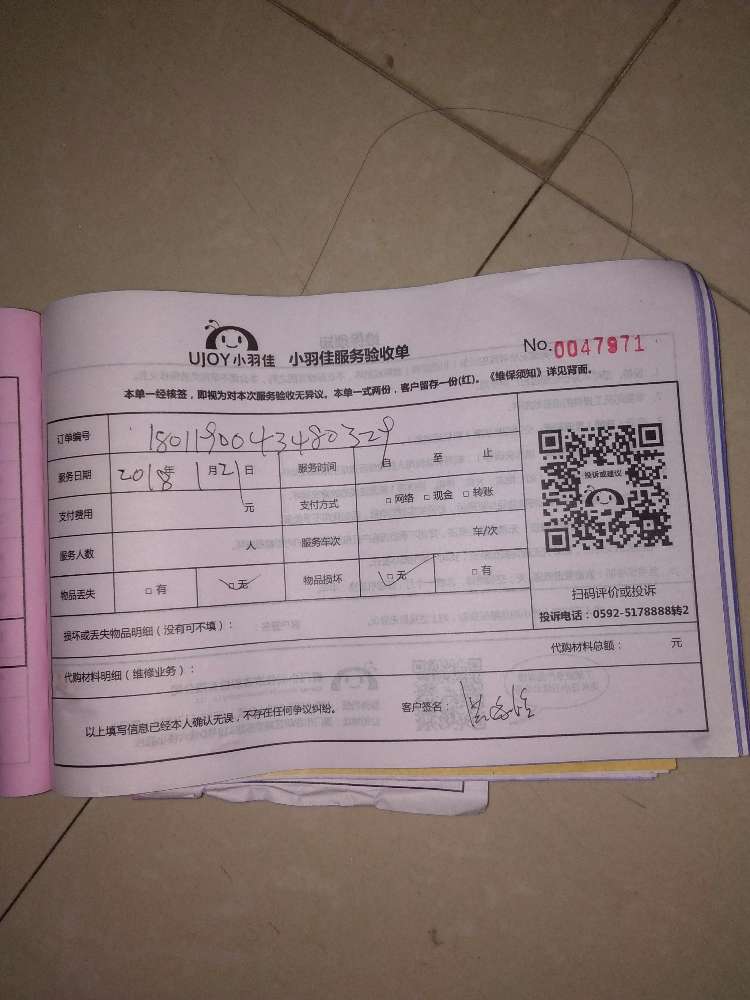 UJOY小羽佳 小羽佳服务验收单 No.0047971
本单一经核签，即视为对本次服务验收无异议。本单一式两份，客户留存一份(红)。《维保须知》详见背面。
订单编号 1801190043480329
服务日期 2018年 1月21日 服务时间 自 至 止
支付费用 元 支付方式 □ 网络 □ 现金 □ 转账
服务人数 人 服务车次 车/次
物品丢失 □ 有 □ 无 物品损坏 □ 无 □ 有
投诉或建议
扫码评价或投诉
投诉电话：0592-5178888转2
损坏或丢失物品明细（没有可不填）：
代购材料明细（维修业务）： 代购材料总额： 元
以上填写信息已经本人确认无误，不存在任何争议纠纷。 客户签名：